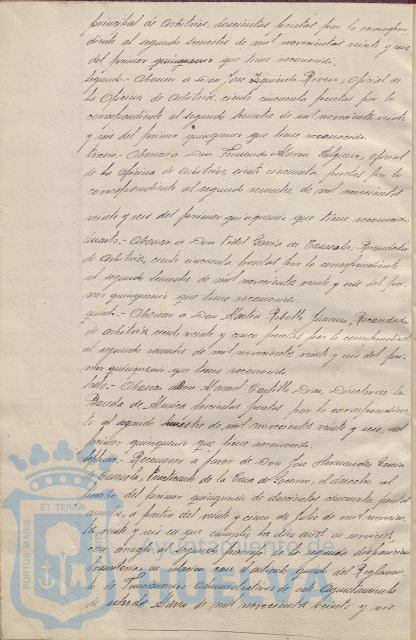 principal de Arbitrios, doscientas pesetas por lo correspon
diente al segundo semestre de mil novecientos veinte y seis
del primer quinquenio que tiene reconocido.
Segundo.- Abonar a Don José Izquierdo Rivera, Oficial de
la Oficina de Arbitrios, ciento cincuenta pesetas por lo
correspondiente al segundo semestre de mil novecientos veinte
y seis del primer quinquenio que tiene reconocido.
Tercero.- Abonar a Don Fernando Oficial
de la Oficina de Arbitrios, ciento cincuenta pesetas por lo
correspondiente al segundo semestre de mil novecientos
veinte y seis del primer quinquenio que tiene reconocido.
Cuarto.- Abonar a Don Fidel García de Recaudador
de Arbitrios, ciento cincuenta pesetas por lo correspondiente
al segundo semestre de mil novecientos veinte y seis del pri-
mer quinquenio que tiene reconocido.
Quinto.- Abonar a Don Martín Rebollo Jimenez, Recaudador
de Arbitrios, ciento veinte y cinco pesetas por lo correspondiente
al segundo semestre de mil novecientos veinte y seis del pri-
mer quinquenio que tiene reconocido.
Sexto.- Abonar a Don Manuel Castillo Díaz, Director de la
Banda de Música, pesetas por lo correspondien
te al segundo semestre de mil novecientos veinte y seis del
primer quinquenio que tiene reconocido.
Séptimo.- Reconocer a favor de Don José Hernández García
Practicante de la Casa de Socorro, el derecho al
del primer quinquenio de doscientas cincuenta pesetas
anuales, a partir del veinte y cinco de Julio de mil novecien
tos veinte y seis en que cumplió los diez años de servicios
con arreglo al segundo de la segunda disposición
transitoria, en relación con el artículo del Reglamen
to de Funcionarios Administrativos de este Ayuntamiento
de de Marzo de mil novecientos veinte y seis
PORTUS MARIS ET TERRAE
Ayuntamiento de
HUELVA